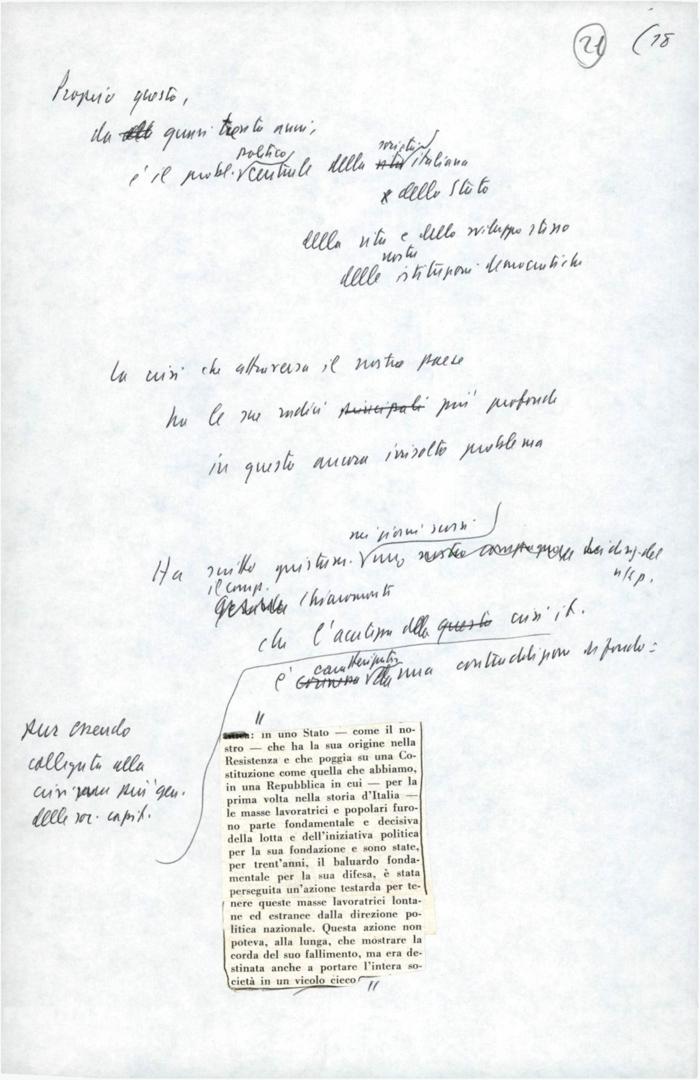 21 (18
Proprio questo,
da quasi trenta anni,
politico società
è il probl. centrale della vita italiana
e dello Stato
della vita e dello sviluppo stesso
nostre
delle istituzioni democratiche
La crisi che attraversa il nostro paese
ha le sue radici principali più profonde
in questo ancora irrisolto problema
nei giorni scorsi
Ha scritto giustam. uno nostro compagno dei dirig. del
n/s p.
il comp.
Gerardo Chiaromonte
che l'acutezza della questa crisi it.
caratterizzata
è da una contraddizione di fondo:
pur essendo
collegata alla
crisi più gen.
delle soc. capit.
"
: in uno Stato — come il no-
stro — che ha la sua origine nella
Resistenza e che poggia su una Co-
stituzione come quella che abbiamo,
in una Repubblica in cui — per la
prima volta nella storia d'Italia —
le masse lavoratrici e popolari furo-
no parte fondamentale e decisiva
della lotta e dell'iniziativa politica
per la sua fondazione e sono state,
per trent'anni, il baluardo fonda-
mentale per la sua difesa, è stata
perseguita un'azione testarda per te-
nere queste masse lavoratrici lonta-
ne ed estranee dalla direzione po-
litica nazionale. Questa azione non
poteva, alla lunga, che mostrare la
corda del suo fallimento, ma era de-
stinata anche a portare l'intera so-
cietà in un vicolo cieco
"